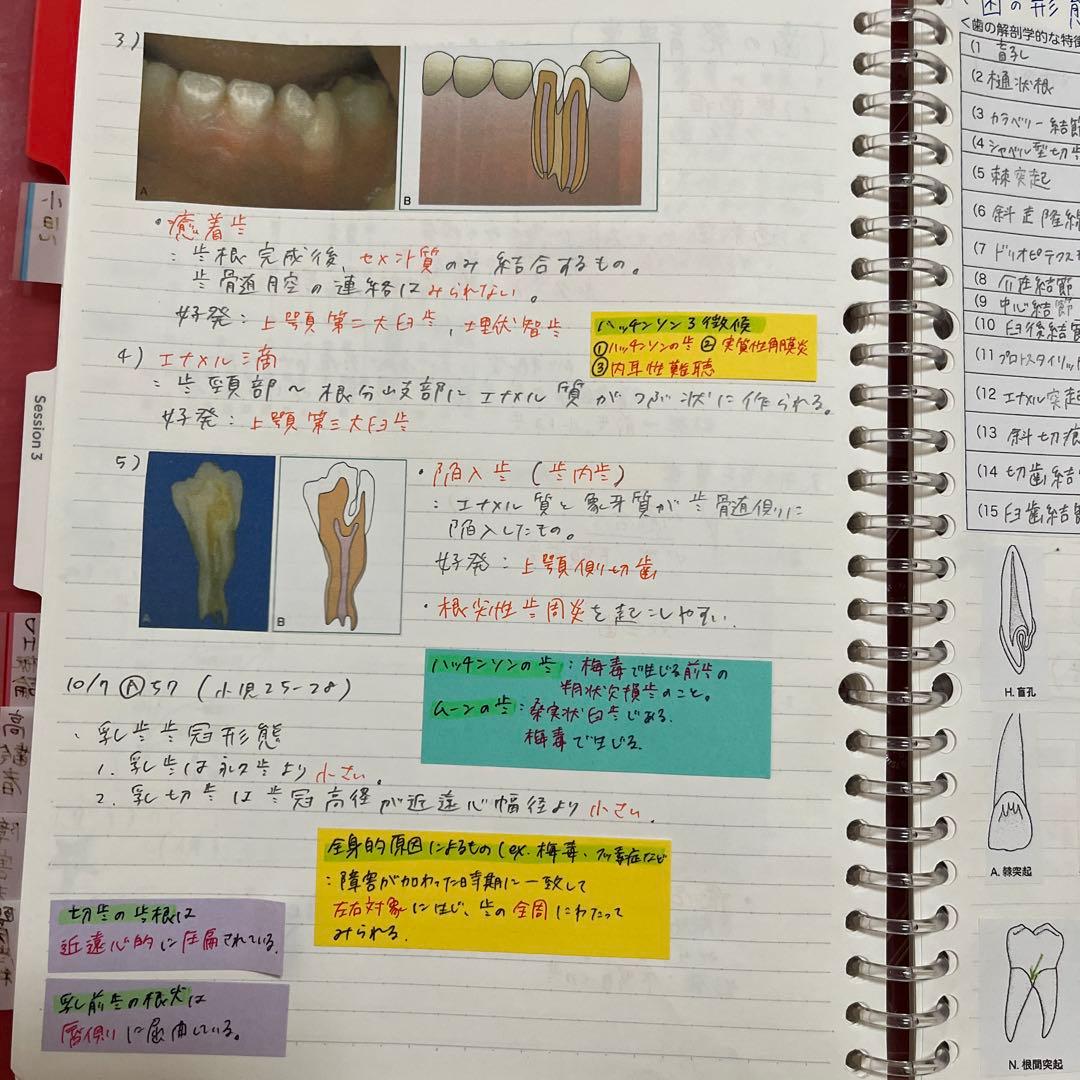 3)
A
B
・癒着歯
：歯根完成後、セメント質のみ結合するもの。
歯髄腔の連絡はみられない。
好発：上顎第二大臼歯，埋伏智歯
ハッチンソン3徴候
①ハッチンソンの歯 ②実質性角膜炎
③内耳性難聴
4) エナメル滴
：歯頸部〜根分岐部にエナメル質がつぶ状に作られる。
好発：上顎第三大臼歯
5)
A
B
・陥入歯（歯内歯）
：エナメル質と象牙質が歯髄側に
陥入したもの。
好発：上顎側切歯
・根尖性歯周炎を起こしやすい.
ハッチンソンの歯：梅毒で生じる前歯の
半月状欠損歯のこと。
ムーンの歯：桑実状臼歯である.
梅毒で生じる.
10/7 Ⓐ57 (小児25-28)
、乳歯歯冠形態
1. 乳歯は永久歯より小さい。
2. 乳切歯は歯冠高径が近遠心幅径より小さい.
全身的原因によるもの(ex.梅毒、フッ素症など
：障害が加わった時期に一致して
左右対象に生じ、歯の全周にわたって
みられる.
切歯の歯根は
近遠心的に圧扁されている.
乳前歯の根尖は
唇側に屈曲している。
小児
Session 3
高齢者
歯の形態
<歯の解剖学的な特徴
(1 盲孔
(2 樋状根
(3 カラベリー結節
(4 シャベル型切歯
(5 棘突起
(6 斜走隆線
(7 ドリオピテクス
(8 介在結節
(9 中心結節
(10 臼後結節
(11 プロトスタイリッド
(12 エナメル突起
(13 斜切痕
(14 切歯結節
(15 臼歯結節
H. 盲孔
A. 棘突起
N. 根間突起